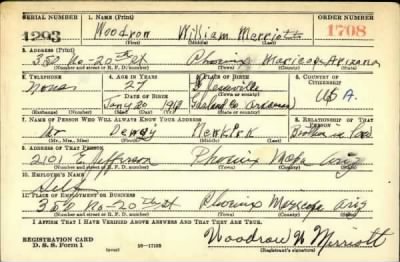 SERIAL NUMBER 1. NAME (Print) ORDER NUMBER
1293 Woodrow William Merriott 1708
(First) (Middle) (Last)
2. ADDRESS (Print)
350 No-20th St Phoenix Maricopa Arizona
(Number and street or R. F. D. number) (Town) (County) (State)
3. TELEPHONE 4. AGE IN YEARS 5. PLACE OF BIRTH 6. COUNTRY OF CITIZENSHIP
None 27
DATE OF BIRTH (Town or county)
1913 Arkansas U S A.
(Exchange) (Number) (Mo.) (Day) (Yr.) (State or country)
7. NAME OF PERSON WHO WILL ALWAYS KNOW YOUR ADDRESS 8. RELATIONSHIP OF THAT PERSON
Mr Dewey Newkirk Brother in Law
(Mr., Mrs., Miss) (First) (Middle) (Last)
9. ADDRESS OF THAT PERSON
2101 E Jefferson Phoenix Mapa Ariz
(Number and street or R. F. D. number) (Town) (County) (State)
10. EMPLOYER'S NAME
Self
11. PLACE OF EMPLOYMENT OR BUSINESS
350 No-20th St Phoenix Maricopa Ariz
(Number and street or R. F. D. number) (Town) (County) (State)
I AFFIRM THAT I HAVE VERIFIED ABOVE ANSWERS AND THAT THEY ARE TRUE.
REGISTRATION CARD
D. S. S. Form 1 16-17105 Woodrow W Merriott
(Registrant's signature)